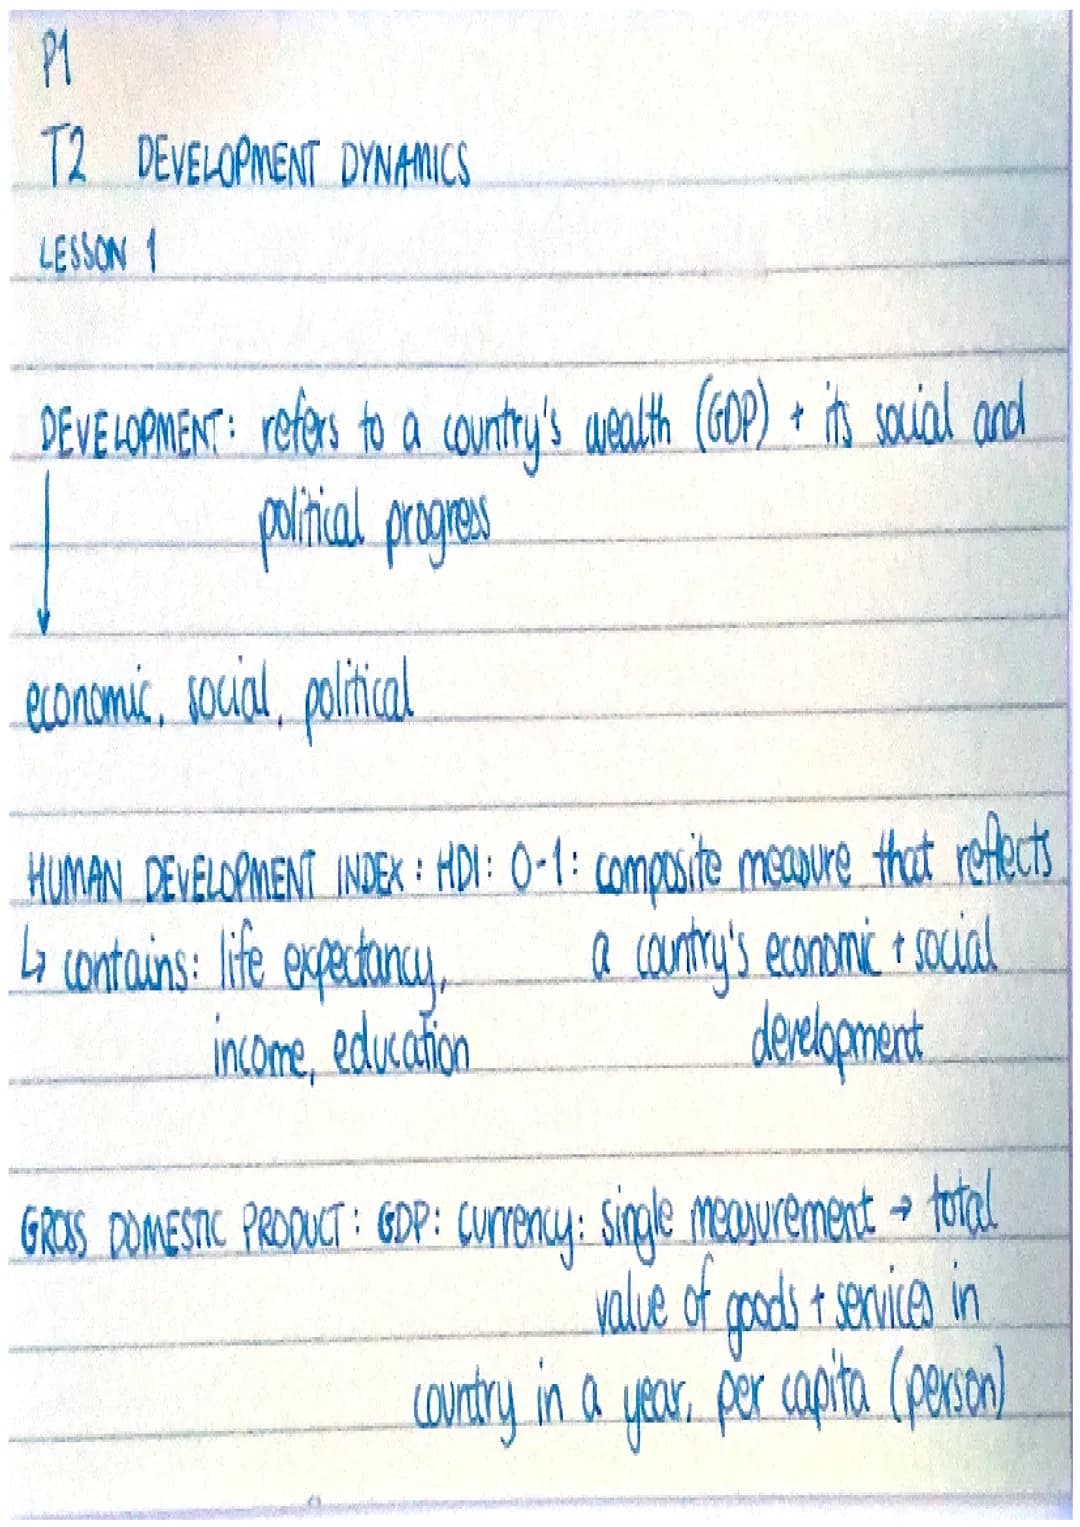 P1
T2 DEVELOPMENT DYNAMICS
LESSON 1
DEVELOPMENT: refers to a country's wealth (GDP) + its social and
political progress
economic, social, political
HUMAN DEVELOPMENT INDEX: HDI: 0-1: composite measure that reflects
↳ contains: life expectancy, a country's economic + social
income, education development
GROSS DOMESTIC PRODUCT: GDP: currency: single measurement → total
value of goods + services in
country in a year, per capita (person)